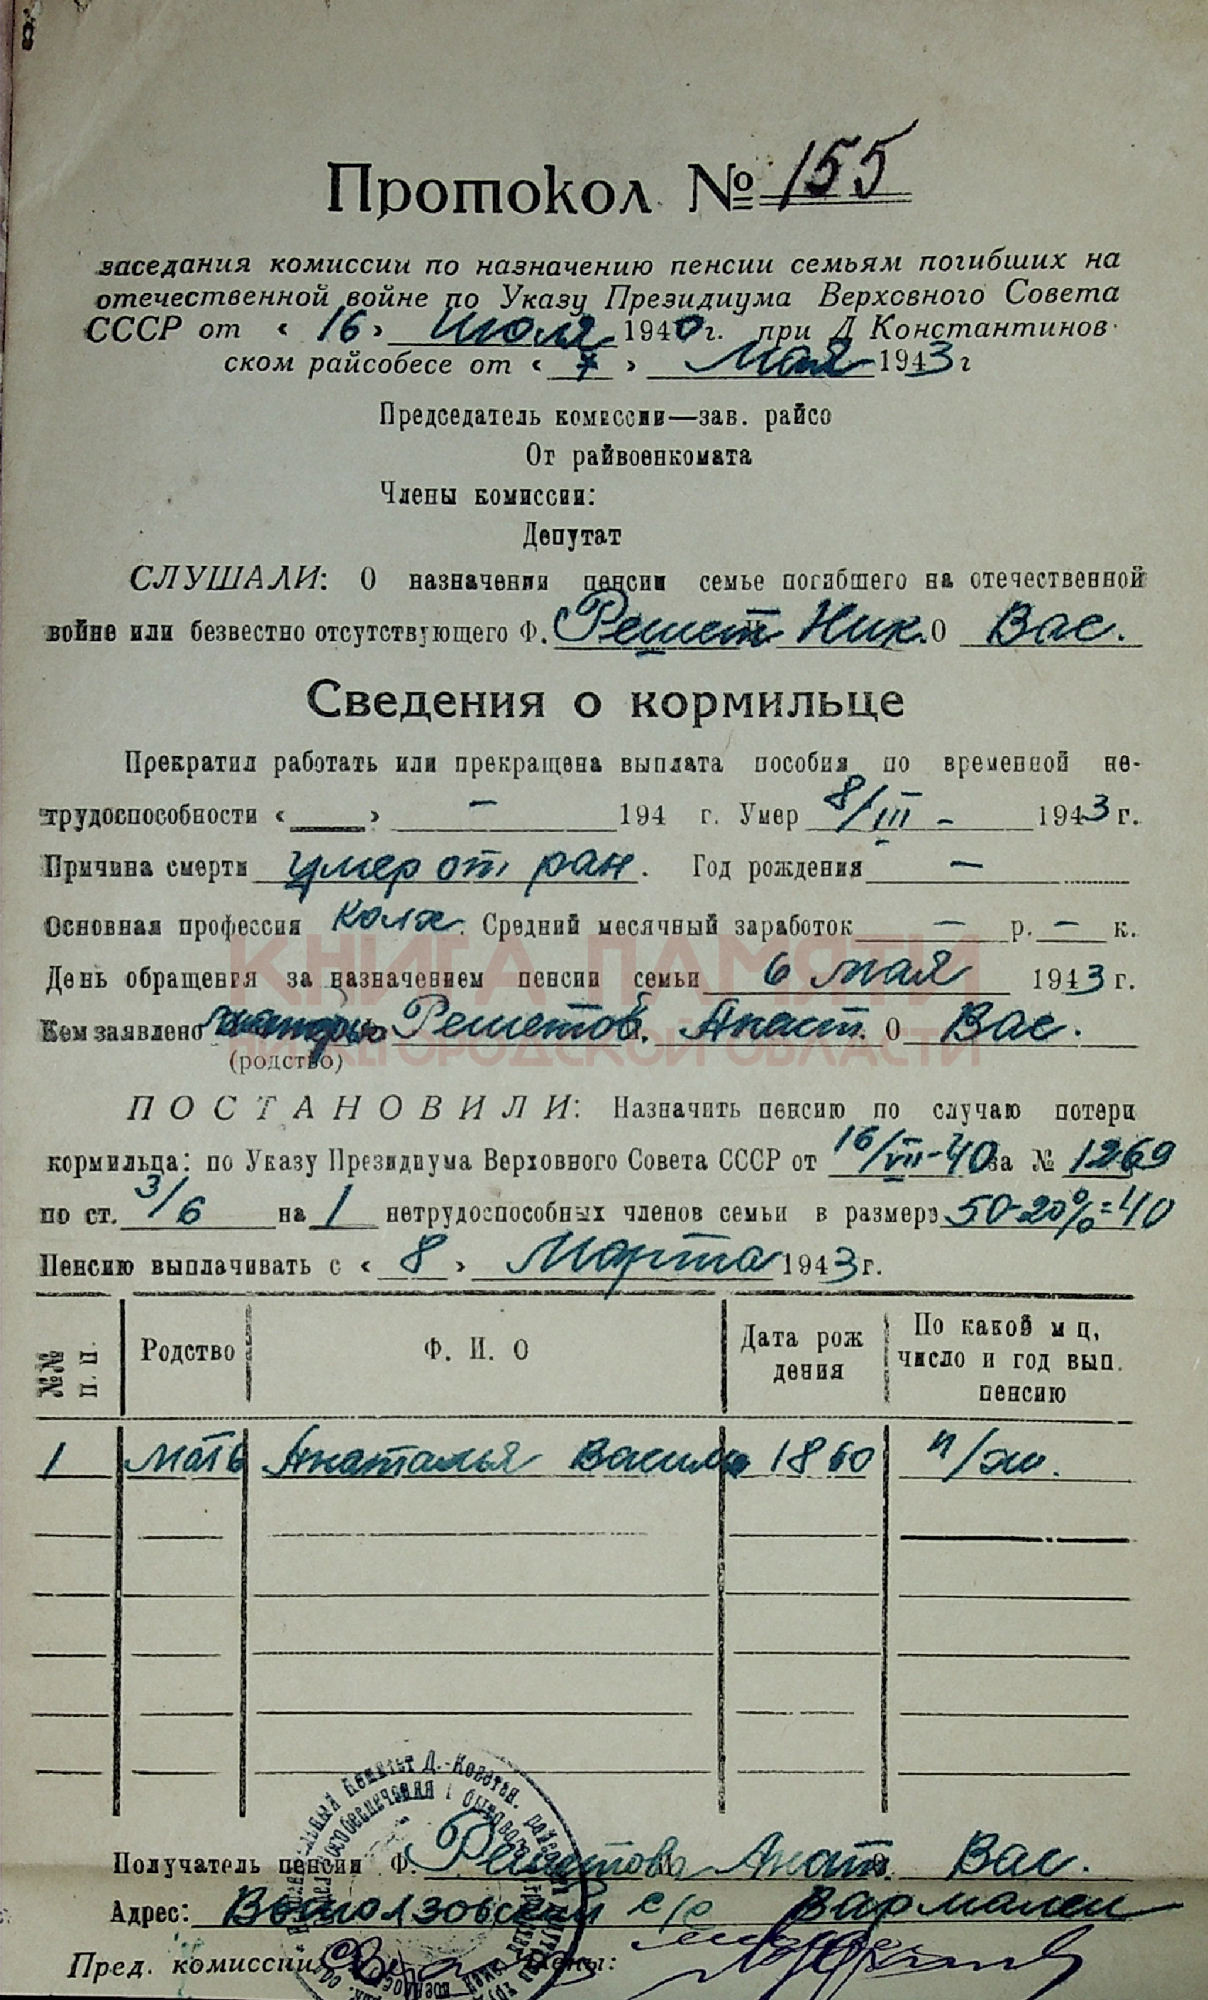 Протокол № 155
заседания комиссии по назначению пенсии семьям погибших на
отечественной войне по Указу Президиума Верховного Совета
СССР от « 16 » Июля 1940 г. при Д Константинов-
ском райсобесе от « 7 » Мая 1943 г
Председатель комиссии—зав. райсо
От райвоенкомата
Члены комиссии:
Депутат
СЛУШАЛИ: О назначении пенсии семье погибшего на отечественной
войне или безвестно отсутствующего Ф. Решет И Ник. О Вас.
Сведения о кормильце
Прекратил работать или прекращена выплата пособия по временной не-
трудоспособности «___» – 194 г. Умер 8/III - 1943 г.
Причина смерти умер от ран. Год рождения –
Основная профессия колх. Средний месячный заработок – р. – к.
День обращения за назначением пенсии семьи 6 мая 1943 г.
КНИГА ПАМЯТИ
Кем заявлено матерью Ф. Решетов. Анаст. О Вас.
НИЖЕГОРОДСКОЙ ОБЛАСТИ
(родство)
ПОСТАНОВИЛИ: Назначить пенсию по случаю потери
кормильца: по Указу Президиума Верховного Совета СССР от 16/VII-40 за № 1269
по ст. 3/6 на 1 нетрудоспособных членов семьи в размере 50-20%=40
Пенсию выплачивать с « 8 » Марта 1943 г.
№№ п. п. Родство Ф. И. О Дата рож дения По какой м ц, число и год вып. пенсию
1 мать Васил 1860 п/ж.
Получатель пенсии Ф. Решетова И Анат О. Вас.
Адрес: с/с Вармалеи
Пред. комиссии Члены: